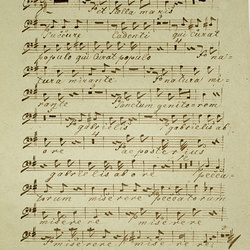 et stella maris
Succure Cadenti qui curat
populo qui curat populo Na-
tura mirante Natura mi-
rante Sanctum genitorem
gabrielis gabrielis ab
ore Sumens
gabrielis ab ore pecca-
torum miserere peccatorum
miserere miserere
miserere miserere